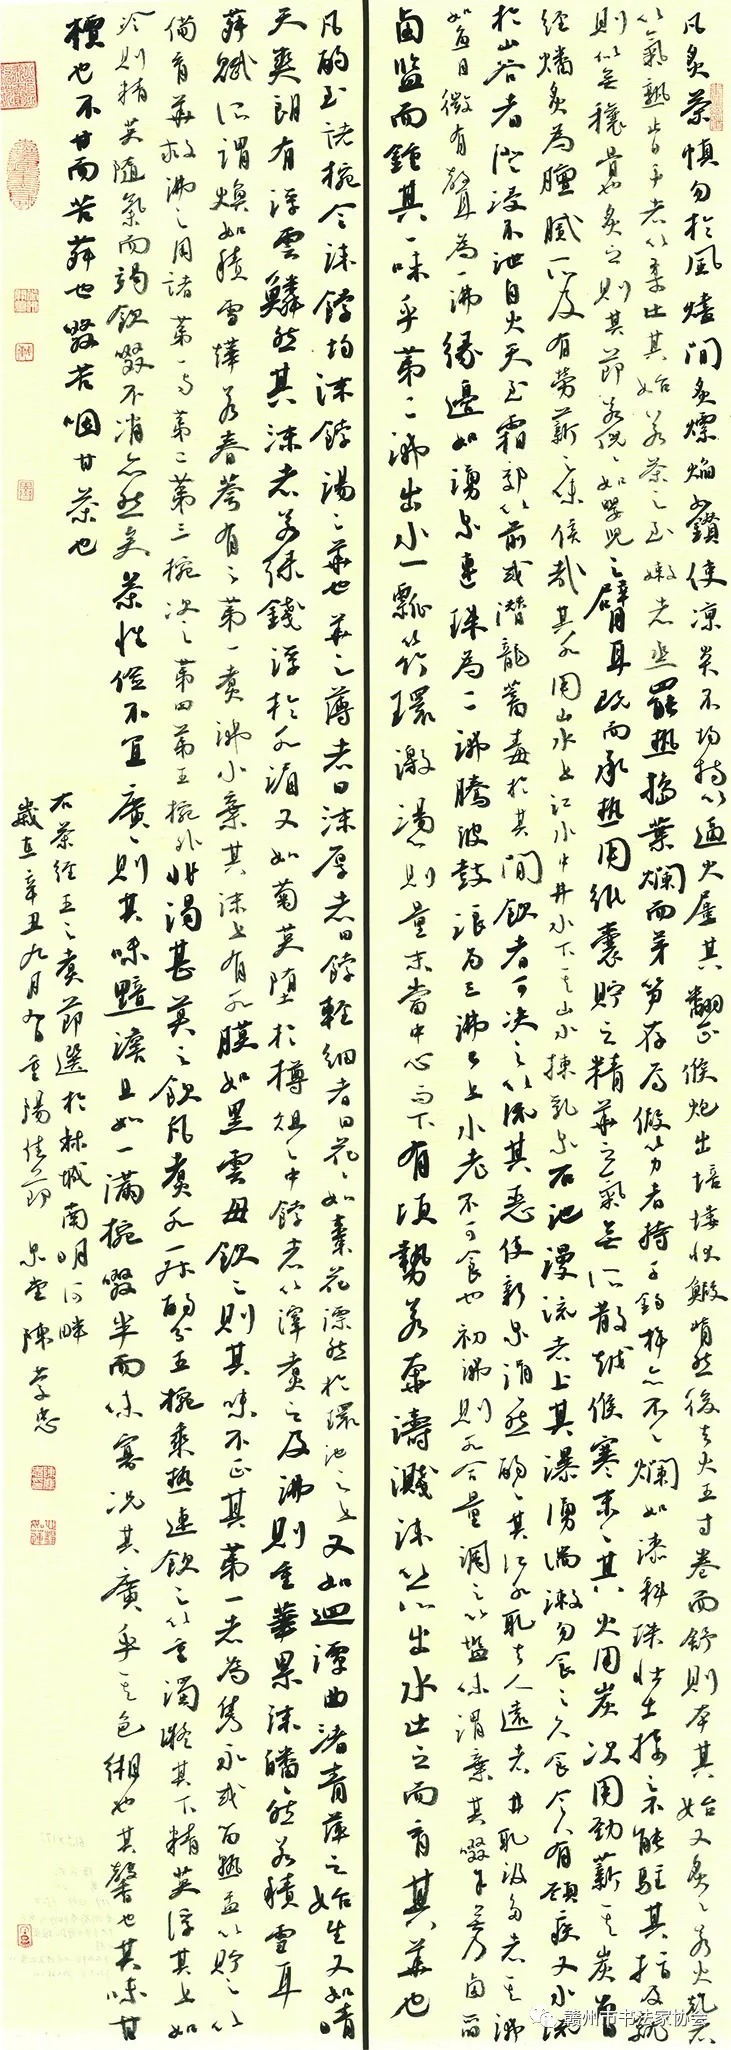 凡炙茶慎勿於風燼間炙熛焰如鑽使凉炎不均持以逼火屢其翻正候炮出培塿狀蝦蟆然後去火五寸卷而舒則本其始又炙之若火乾者
以氣熟止日乾者以柔止其始若茶之至嫩者蒸罷熱搗葉爛而芽筍存焉假以力者持千鈞杵亦不之爛如漆科珠壯士接之不能駐其指及就
則似無穰骨也炙之則其節若倪倪如嬰兒之臂耳既而承熱用紙囊貯之精華之氣無所散越候寒末之其火用炭次用勁薪其炭曾
經燔炙為膻膩所及有勞薪之味信哉其水用山水上江水中井水下其山水揀乳泉石池漫流者上其瀑湧湍漱勿食之久食令人有頸疾又水流
於山谷者澄浸不洩自火天至霜郊以前或潛龍蓄毒於其間飲者可決之以流其惡使新泉涓涓然酌之其江水取去人遠者井取汲多者其沸
如魚目微有聲為一沸緣邊如湧泉連珠為二沸騰波鼓浪為三沸已上水老不可食也初沸則水合量調之以鹽味謂棄其啜餘無乃
鹵監而鍾其一味乎第二沸出水一瓢以竹環激湯心則量末當中心而下有頃勢若奔濤濺沫以所出水止之而育其華也
凡酌至諸碗令沫餑均沫餑湯之華也華之薄者曰沫厚者曰餑輕細者曰花花如棗花漂然於環池之上又如迴潭曲渚青萍之始生又如晴
天爽朗有浮雲鱗然其沫者若綠錢浮於水湄又如菊英墮於樽俎之中餑者以滓煮之及沸則重華累沫皤皤然若積雪耳
荈賦所謂煥如積雪燁若春藪有之第一煮沸水棄其沫上有水膜如黑雲母飲之則其味不正其第一者為雋永或留熟盂以貯之以
備育華救沸之用諸第一與第二第三碗次之第四第五碗外非渴甚莫之飲凡煮水一升酌分五碗乘熱連飲之以重濁凝其下精英浮其上如
冷則精英隨氣而竭飲啜不消亦然矣茶性儉不宜廣廣則其味黯澹且如一滿碗啜半而味寡況其廣乎其色緗也其馨也其味甘
檟也不甘而苦荈也啜苦咽甘茶也
右茶經五之煮節選於林城南明河畔
歲在辛丑九月初九重陽佳節 陳學忠
赣州市书法家协会